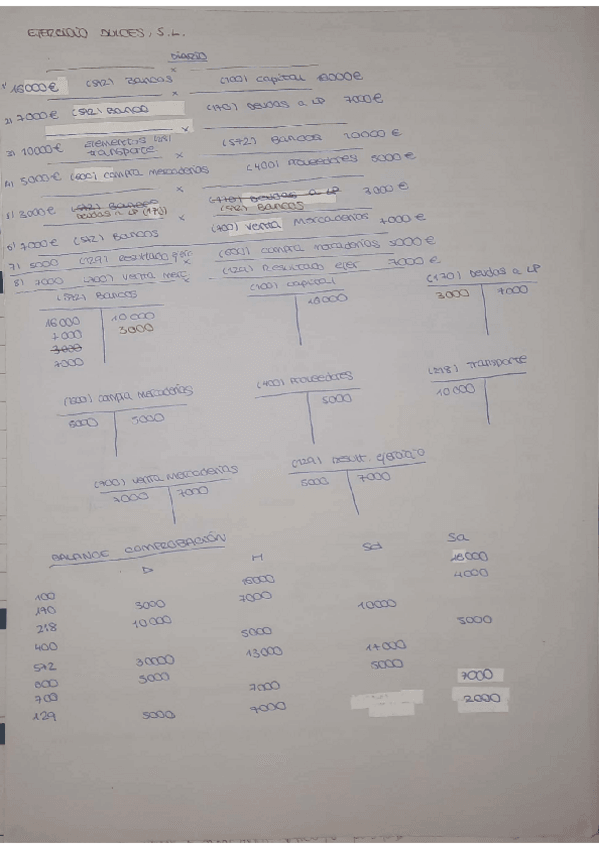 EJERCICIO DULCES, S.L.
DIARIO
1) 16000€ (572) Bancos x (100) capital 16000€
2) 7000€ (572) Banco x (170) Deudas a LP 7000€
3) 10000€ Elementos (218) transporte x (572) Bancos 10000€
4) 5000€ (600) compra mercaderías x (400) Proveedores 5000€
5) 3000€ Deudas a LP (170) x (572) Bancos 3000€
6) 7000€ (572) Bancos (700) venta Mercaderías 7000€
7) 5000 (129) Resultado ejer x (600) compra mercaderías 5000€
8) 7000 (700) venta merc x (129) Resultados ejer 7000€
(572) Bancos (100) capital (170) Deudas a LP
16000 10000 16000 3000 7000
7000 3000
3000
7000
(600) compra mercaderías (400) Proveedores (218) Transporte
5000 5000 5000 10000
(700) venta mercaderías (129) result. ejercicio
7000 7000 5000 7000
BALANCE COMPROBACIÓN
D H Sd Sa
100 16000 16000
170 3000 7000 4000
218 10000 10000
400 5000 5000
572 30000 13000 17000
600 5000 5000
700 7000 7000
129 5000 7000 2000